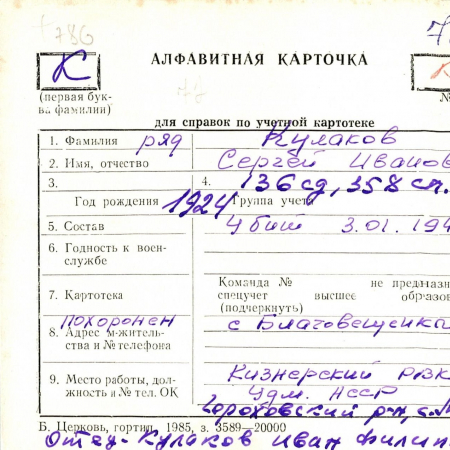 786
К
АЛФАВИТНАЯ КАРТОЧКА
(первая бук-
ва фамилии)
№
для справок по учетной картотеке
1. Фамилия ряд Кулаков
2. Имя, отчество Сергей Иванов
3. 4. 136 сд, 358 сп.
Год рождения 1924 Группа учета
5. Состав Убит 3.01.194
6. Годность к воен-
службе
Команда № не предназн
7. Картотека спецучет высшее образов
(подчеркнуть)
похоронен с Благовещенка
8. Адрес м-житель-
ства и № телефона
9. Место работы, дол-
жность и № тел. ОК
Кизнерский РВК
Удм. АССР
Гороховский р-н, с.
Б. Церковь, гортип. 1985, з. 3589—20000
Отец - Кулаков Иван Филип